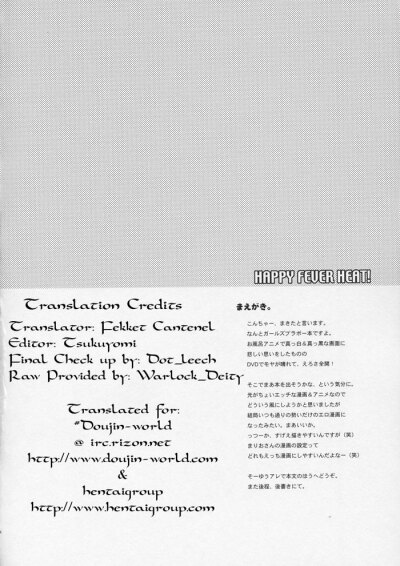 HAPPY FEVER HEAT!
Translation Credits
Translator: Fekket Cantenel
Editor: Tsukuyomi
Final Check up by: Dot_leech
Raw Provided by: Warlock_Deity
Translated for:
#Doujin-world
@ irc.rizon.net
http://www.doujin-world.com
&
hentaigroup
http://www.hentaigroup.com
まえがき。
こんちゃー、まきたと言います。
なんとガールズブラボー本ですよ。
お風呂アニメで真っ白&真っ黒な画面に
悲しい思いをしたものの
DVDでモヤが晴れて、えろさ全開!
そこでまあ本を出そうかな、という気分に。
元がちょいエッチな漫画&アニメなので
どういう風にしようかと思いましたが
結局いつも通りの勢いだけのエロ漫画に
なったみたい。まあいいか。
っつーか、すげえ描きやすいんですが(笑)
まりおさんの漫画の設定って
どれもえっち漫画にしやすいんだよなー(笑)
そーゆうアレで本文のほうへどうぞ。
また後程、後書きにて。